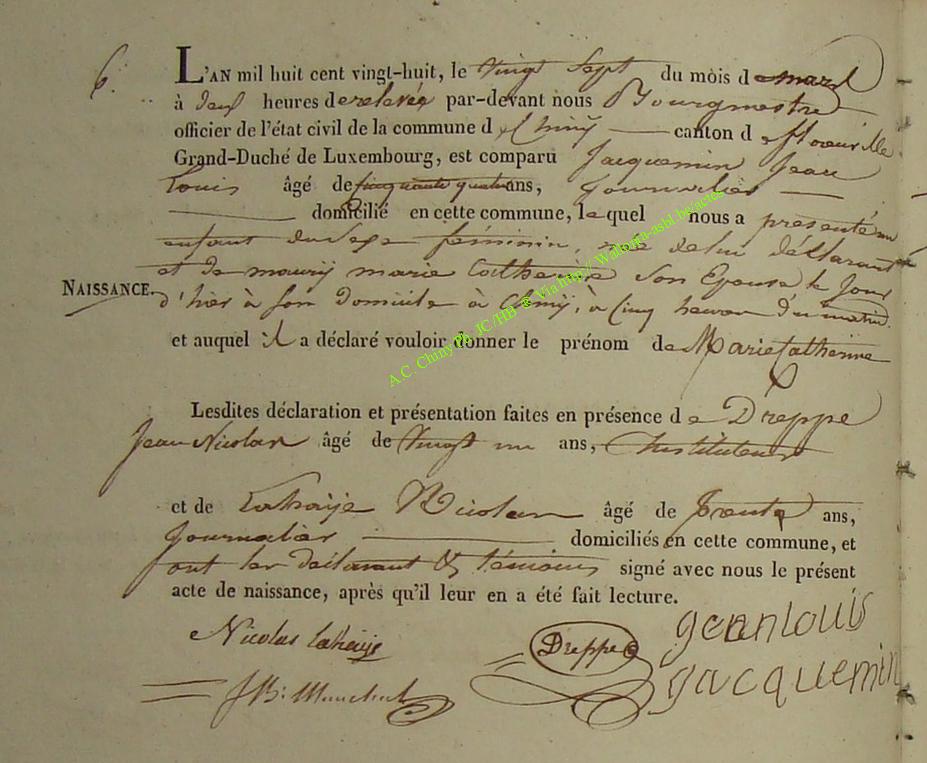 6.
L'AN mil huit cent vingt-huit, le vingt sept du mois de mars
à deux heures de relevée par-devant nous Bourgmestre
officier de l'état civil de la commune d Chiny canton d florenville
Grand-Duché de Luxembourg, est comparu Jacquemin Jean
Louis âgé de cinquante quatre ans, journalier
domicilié en cette commune, lequel nous a présenté un
enfant du Sexe féminin, née de lui déclarant
et de maury marie Catherine Son Epouse le jour
NAISSANCE. d'hier à son Domicile à Chiny, à cinq heures du matin.
et auquel il a déclaré vouloir donner le prénom de Marie Catherine
Lesdites déclaration et présentation faites en présence de Dreppe
Jean Nicolas âgé de vingt un ans, Instituteur
et de Lahaye Nicolas âgé de trente ans,
journalier domiciliés en cette commune, et
ont les déclarant & témoins signé avec nous le présent
acte de naissance, après qu'il leur en a été fait lecture.
Nicolas Lahaye
Dreppe
jean louis
jacquemin
A.C. Chiny Ph. JC/HB @ Via http// Wallonia-asbl.be/actes